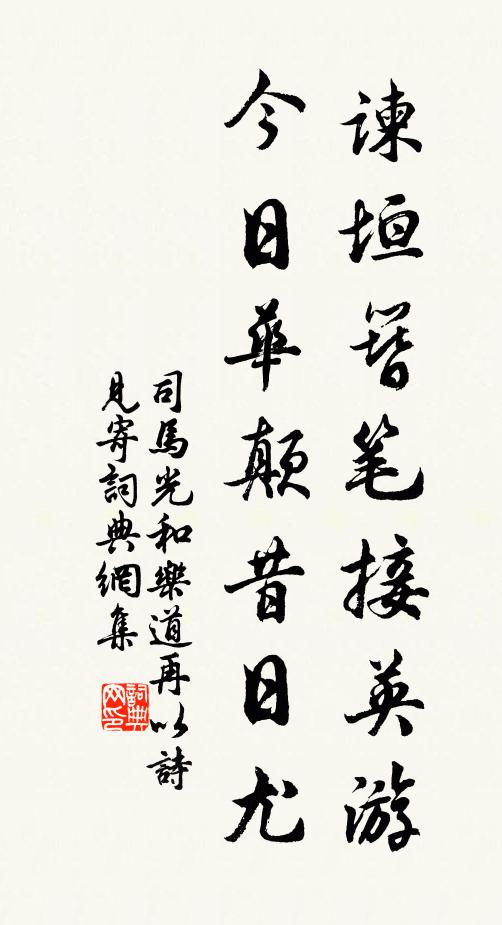 諫垣簪笔接英游
今日華顛昔日尤
司馬光和樂道再以詩
見寄詞典網集
詞典
网印